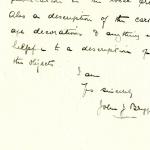 Also a description of the
age decorations & anything
helpful to a description of
the objects
I am
Yrs. sincerely
John J